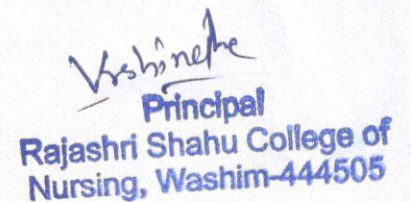 Principal
Rajashri Shahu College of
Nursing, Washim-444505